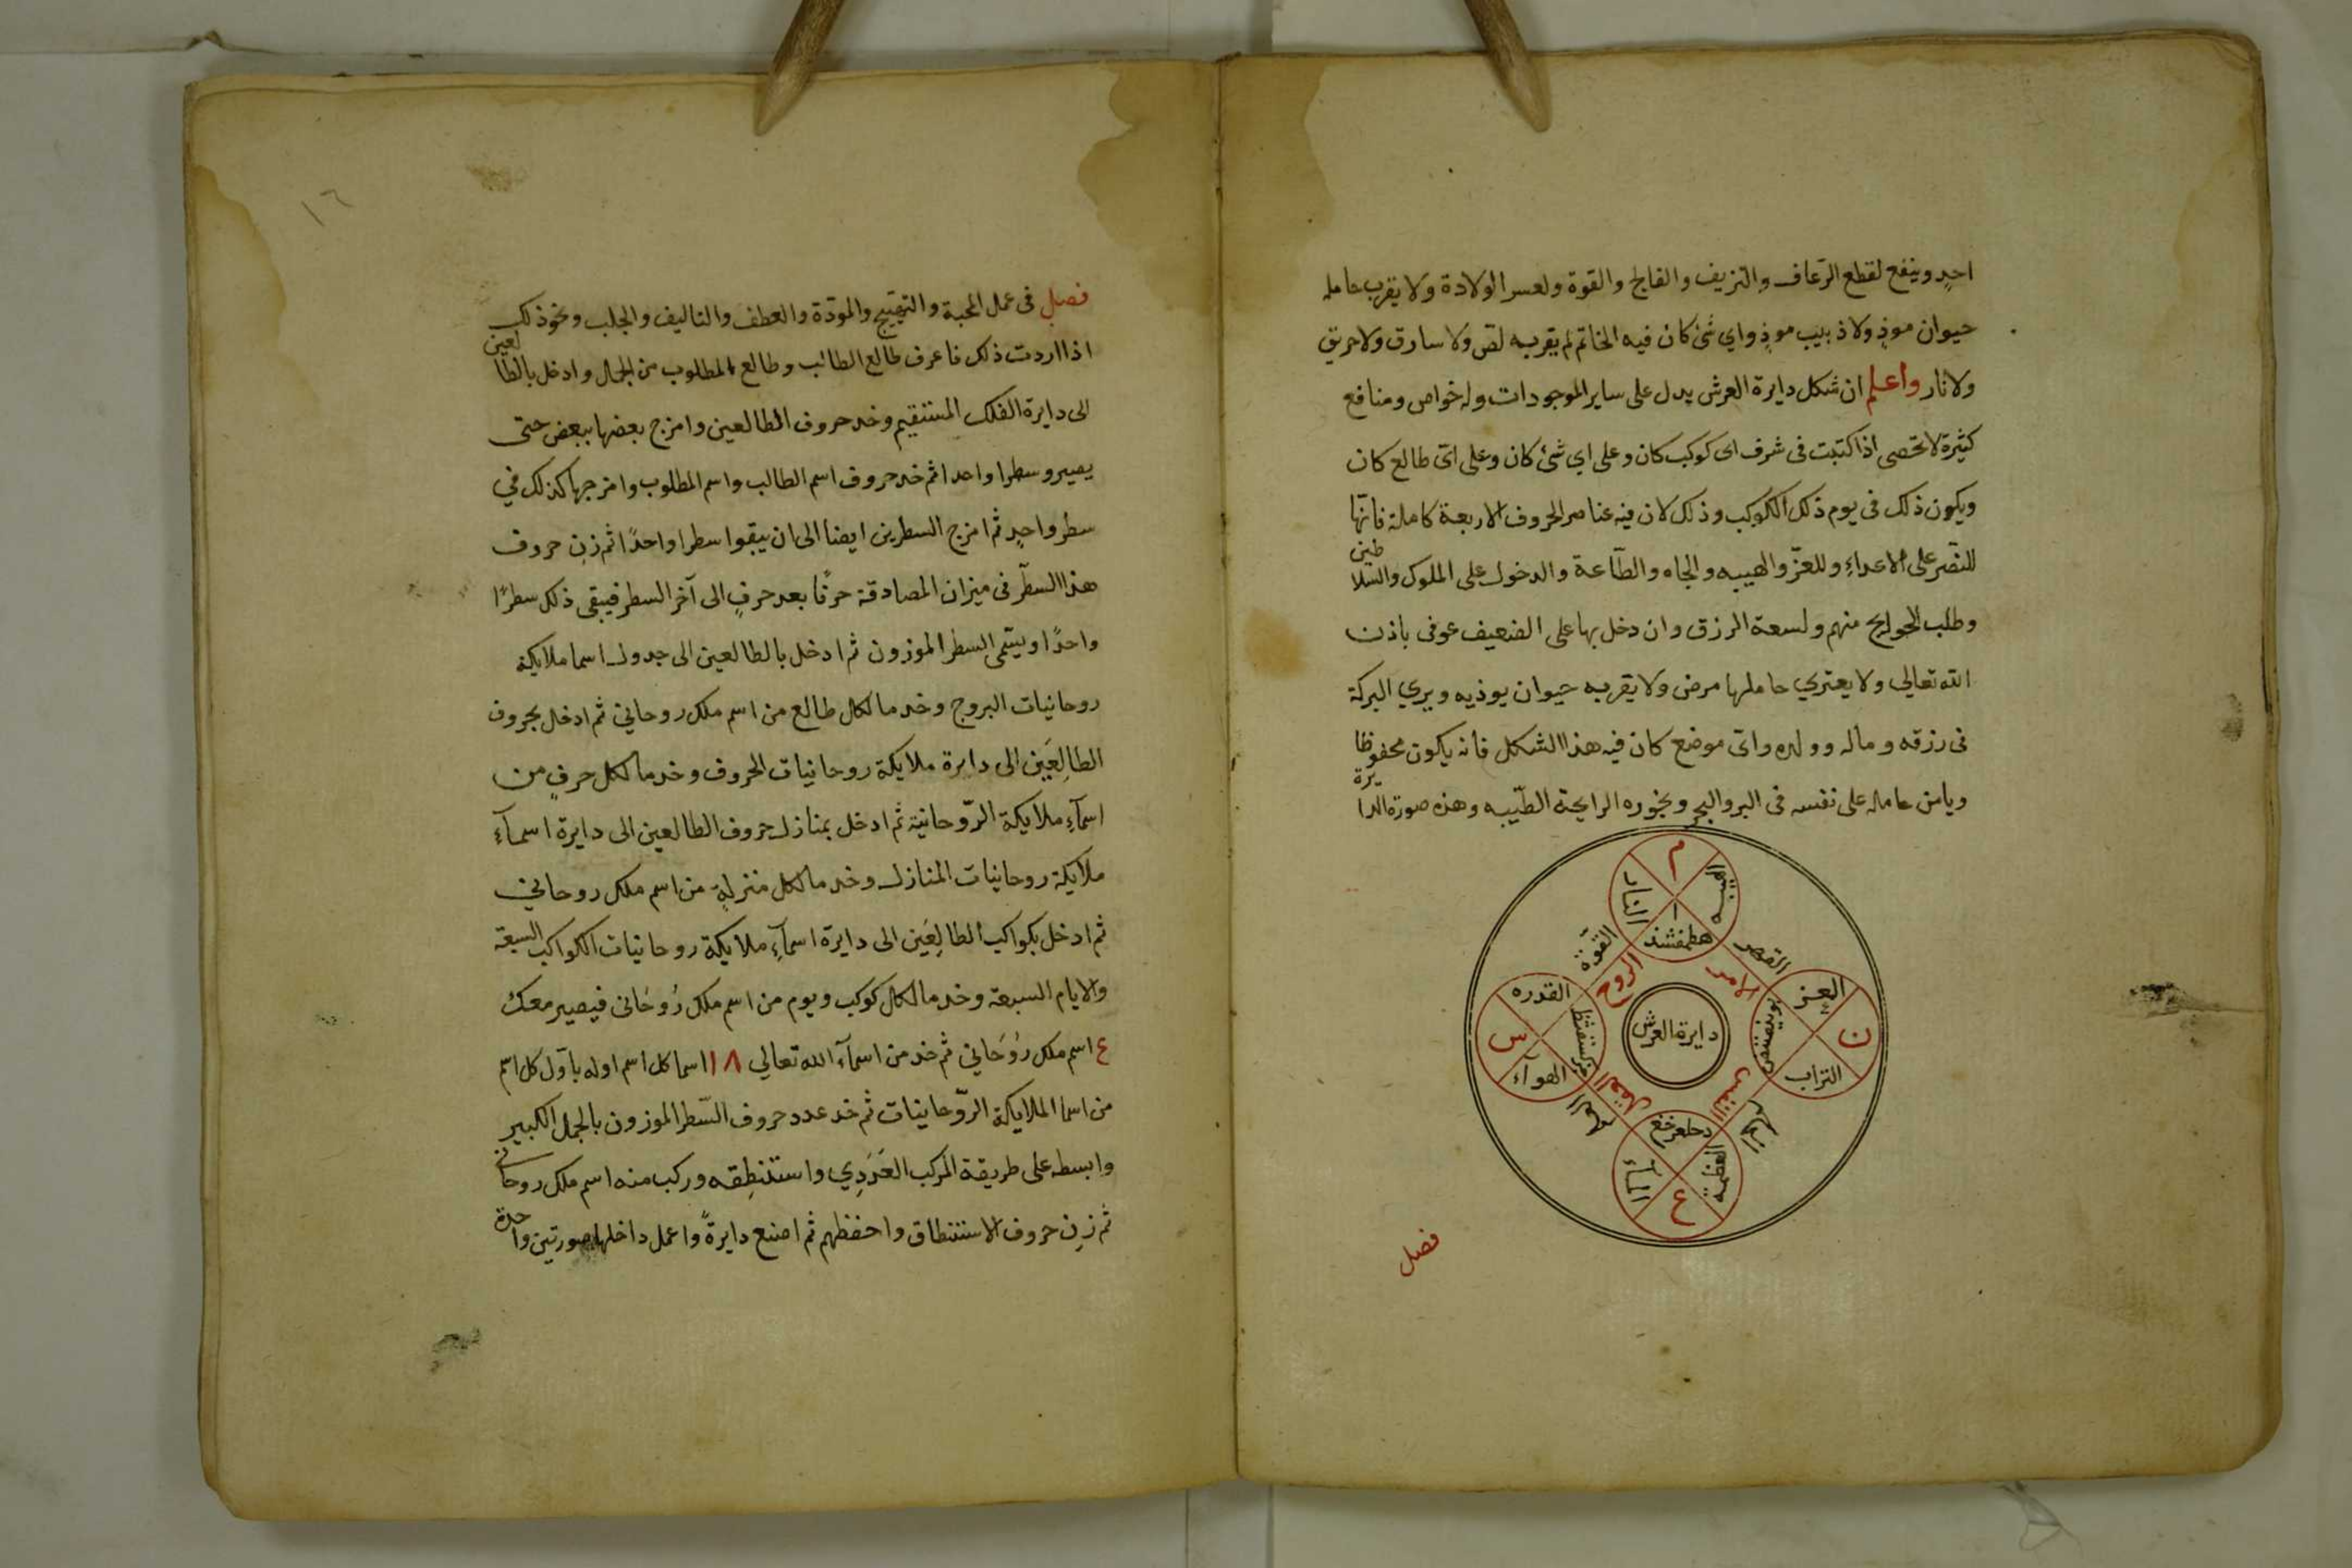 احدٍ وينفع لقطع الرّعاف والنزيف والفالج والقوة ولعسر الولادة ولا يقرب حامله
حيوان موذٍ ولا ذبيب موذٍ واي شئ كان فيه الخاتم لم يقربه لص ولا سارق ولا حريق
ولا نار واعلم ان شكل دايرة العرش يدل على ساير الموجودات وله خواص ومنافع
كثيرة لا تحصى اذا كتبت فى شرف اى كوكب كان وعلى اي شئ كان وعلى اىّ طالع كان
ويكون ذلك فى يوم ذلك الكوكب وذلك لان فيه عناصر الحروف الاربعة كاملة فانّها
للنصّر على الاعداء وللعزّ والهيبه والجاه والطّاعة والدخول على الملوك والسّلاطين
وطلب الحوايج منهم ولسعة الرزق وان دخل بها على الضعيف عوفى باذن
الله تعالي ولا يعتري حاملها مرض ولا يقربه حيوان يوذيه ويري البركة
فى رزقه وماله وولده واىّ موضع كان فيه هذا الشكل فانه يكون محفوظا
ويامن حامله على نفسه فى البر والبحر وبخوره الرايحة الطّيبه وهذه صورة الدايرة
م
النار
ا
هطمفشذ
القوّة
القهر
الروح
الامر
القدره
س
الهوآء
دايرة العرش
العز
ن
التراب
بوينصتض
العقل
النفس
العلم
دحلعرخغ
العظمة
المآء
ع
فصل
١٦
فصل فى عمل المحبة والتهيّج والمودّة والعطف والتاليف والجلب ونحو ذلك
اذا اردت ذلك فاعرف طالع الطالب وطالع المطلوب من الجمال وادخل بالطالعين
الى دايرة الفلك المستقيم وخد حروف الطالعين وامزج بعضها ببعض حتى
يصيروسطرا واحدا ثم خد حروف اسم الطالب واسم المطلوب وامزجها كذلك في
سطر واحدٍ ثم امزج السطرين ايضا الى ان يبقوا سطرا واحدًا ثم زن حروف
هذا السطّر فى ميزان المصادقة حرفًا بعد حرفٍ الى آخر السطر فيبقى ذلك سطرًا
واحدًا ويسّمى السطر الموزون ثم ادخل بالطالعين الى جدول اسما ملايكة
روحانيات البروج وخد ما لكل طالع من اسم ملك روحاني ثم ادخل بحروف
الطالِعَين الى دايرة ملايكة روحانيات الحروف وخد ما لكل حرفٍ من
اسمآءِ ملايكة الرّوحانية ثم ادخل بمنازل حروف الطالعين الى دايرة اسمآء
ملايكة روحانيات المنازل وخد ما لكل منزلةٍ من اسم ملك روحاني
ثم ادخل بكواكب الطالِعَين الى دايرة اسمآءِ ملايكة روحانيات الكواكب السبعة
والايام السبعة وخد ما لكل كوكب ويوم من اسم ملك رُوحَانى فيصير معك
ع اسم ملك رُوحَاني ثم خد من اسمآء الله تعالي ١٨ اسما كل اسم اوله باوّل كل اسّم
من اسما الملايكة الرّوحانيات ثم خد عدد حروف السّطر الموزون بالجمل الكبير
وابسطه على طريقة المركب العَدَدِي واستنطِقه وركب منه اسم ملك روحانى
ثم زِن حروف الاستنطاق واحفظهم ثم اصنع دايرةً واعمل داخلها صورتين واحدة